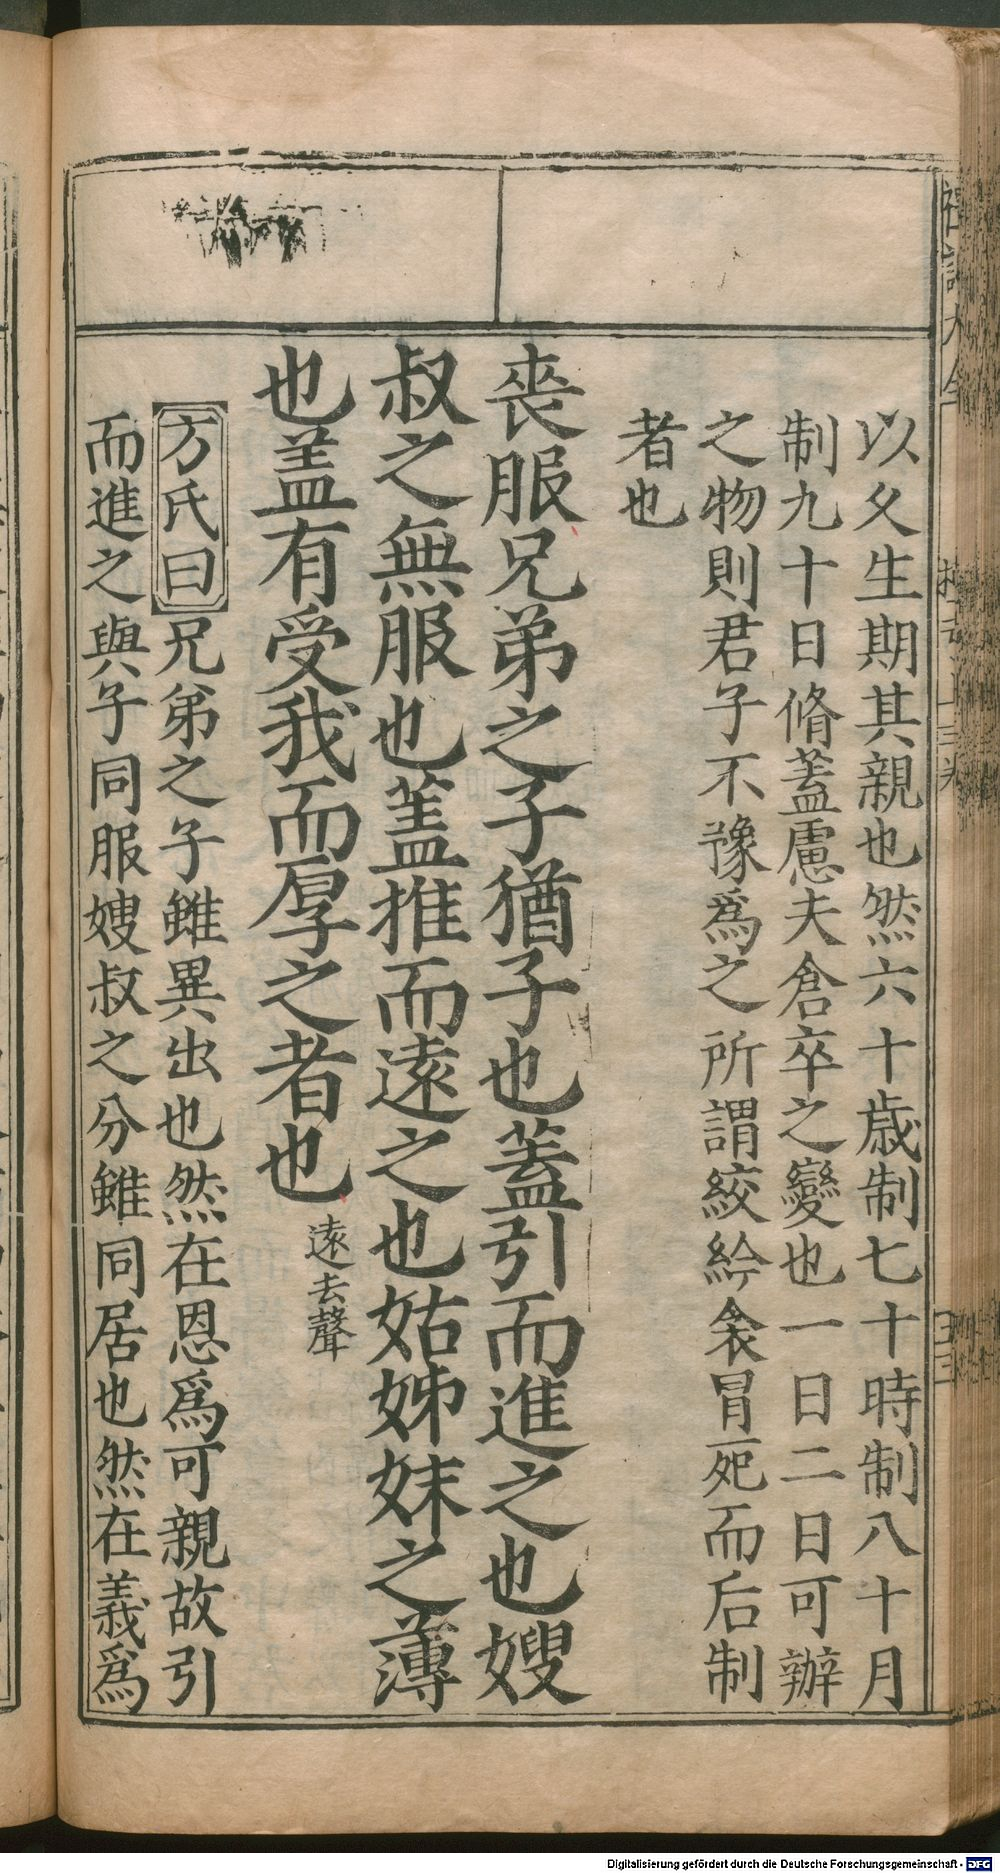 以父生期其親也然六十歳制七十時制八十月
制九十日脩蓋慮夫倉卒之變也一日二日可辦
之物則君子不豫爲之所謂絞紟衾冒死而后制
者也
喪服兄弟之子猶子也蓋引而進之也嫂
叔之無服也盖推而逺之也姑姊妹之薄
也盖有受我而厚之者也 逺去聲
方氏曰兄弟之子雖異出也然在恩爲可親故引
而進之與子同服嫂叔之分雖同居也然在義爲
Digitalisierung gefördert durch die Deutsche Forschungsgemeinschaft - DFG